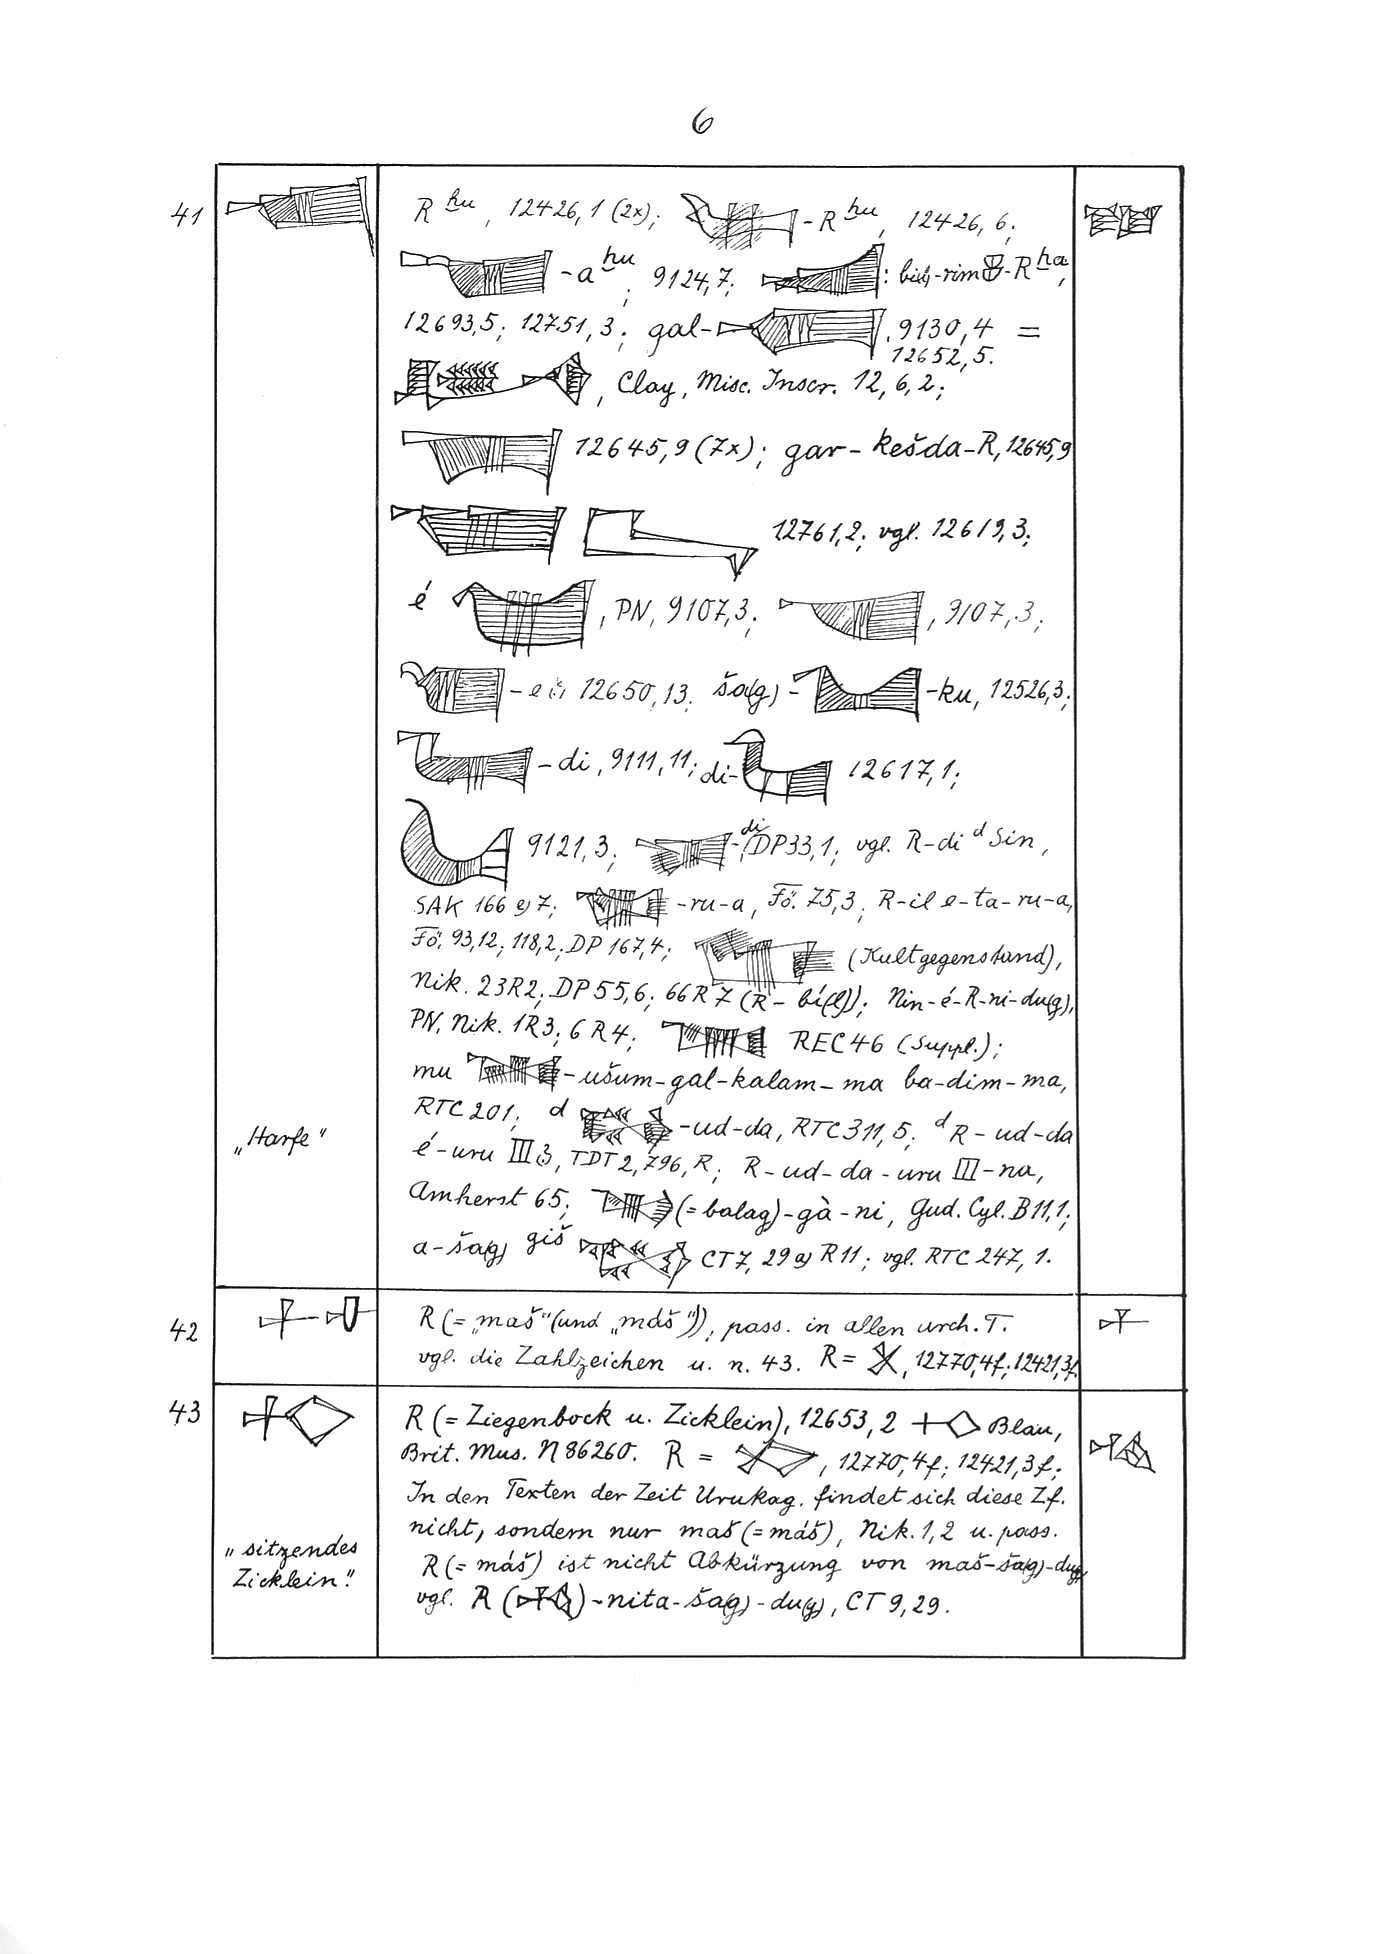 6
41 R ḫu, 12426,1 (2x); -R ḫu, 12426,6;
-a ḫu; 9124,7; : -rim-R ḫa,
12693,5; 12751,3; gal- , 9130,4 =
12652,5.
, Clay, Misc. Inscr. 12,6,2;
12645,9 (7x); gar-kešda-R, 12645,9
12761,2; vgl. 12619,3;
é , PN, 9107,3; , 9107,3;
- 12650,13. ša(g)- -ku, 12526,3;
-di, 9111,11; di- 12617,1;
9121,3; -di, DP33,1; vgl. R-di d Sin,
SAK 166 e) 7; -ru-a, Fö. 75,3; R-il e-ta-ru-a,
Fö. 93,12; 118,2; DP 167,4; (Kultgegenstand),
Nik. 23R2; DP55,6; 66R7 (R-bí(l)); Nin-é-R-ni-du(g),
PN, Nik. 1R3; 6R4; REC46 (Suppl.);
mu -ušum-gal-kalam-ma ba-dim-ma,
RTC 201; d -ud-da, RTC311,5; d R-ud-da
„Harfe“ é-uru III, TDT2,796,R; R-ud-da-uru III-na,
Amherst 65; (=balag)-gà-ni, Gud. Cyl. B11,1;
a-ša(g) giš CT7, 29 a) R11; vgl. RTC 247, 1.
42 R (= „maš“ (und „máš“)), pass. in allen arch. T.
vgl. die Zahlzeichen u. n. 43. R= , 12770,4f; 12421,3f.
43 R (= Ziegenbock u. Zicklein), 12653,2 Blau,
Brit. Mus. N 86260. R = , 12770,4f; 12421,3f;
In den Texten der Zeit Urukag. findet sich diese Zf.
nicht, sondern nur maš (=máš), Nik. 1,2 u. pass.
„sitzendes R (= máš) ist nicht Abkürzung von maš-ša(g)-du(g)
Zicklein“. vgl. R ( )-nita-ša(g)-du(g), CT 9,29.